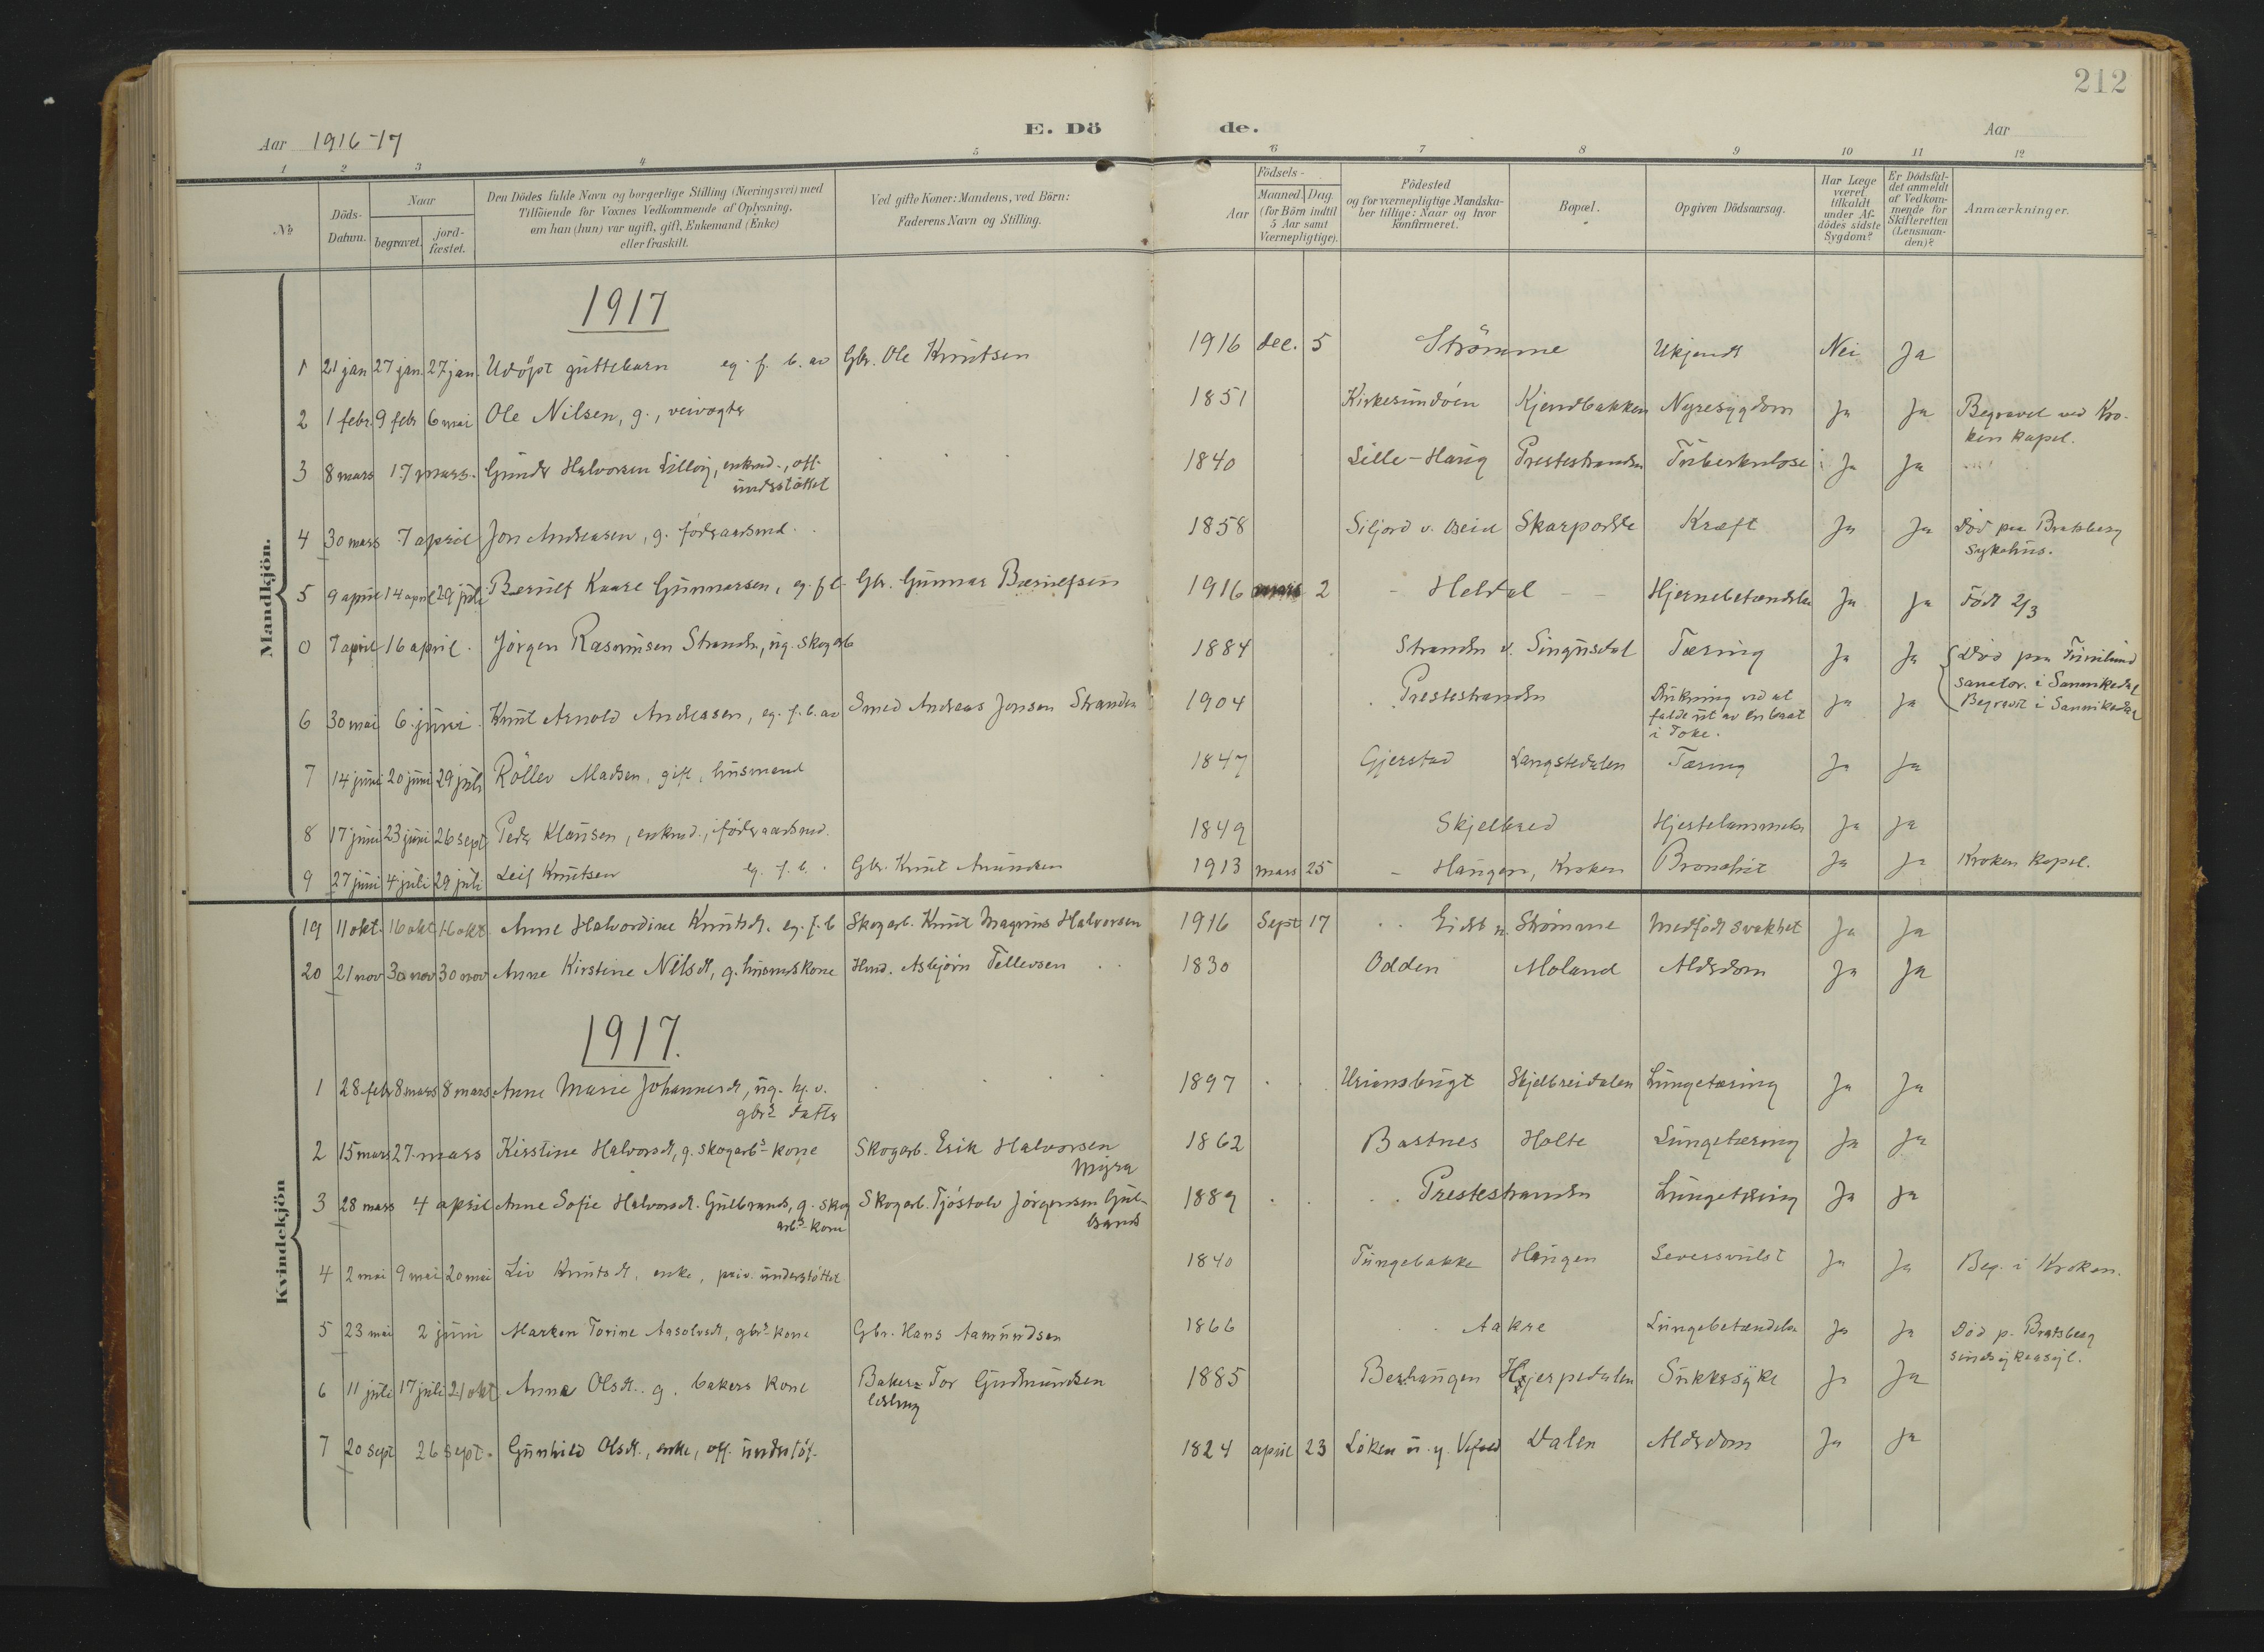 212
Aar 1916-17
E. Dö
de.
Aar
1 2 3 4 5 6 7 8 9 10 11 12
No
Döds-Datum.
Naar
begravet.
jord-fæstet.
Den Dödes fulde Navn og borgerlige Stilling (Næringsvei) med
Tilföiende for Voxnes Vedkommende af Oplysning,
om han (hun) var ugift, gift, Enkemand (Enke)
eller fraskilt.
Ved gifte Koner: Mandens, ved Börn:
Faderens Navn og Stilling.
Aar
Födsels-
Maaned. Dag.
(for Börn indtil
5 Aar samt
Værnepligtige).
Födested
og for værnepligtige Mandska-
ber tillige: Naar og hvor
konfirmeret.
Bopæl.
Opgiven Dödsaarsag.
Har Læge
været
tilkaldt
under Af-
dödes sidste
Sygdom?
Er Dödsfal-
det anmeldt
af Vedkom-
mende for
Skifteretten
(Lensman-
den)?
Anmærkninger.
Mandkjön.
1917
1 21 jan 27 jan. 27 jan. Udöpt guttebarn eg. f. b. av Gbr. Ole Knutsen 1916 dec. 5 Strömme Ukjendt Nei Ja
2 1 febr. 9 febr 6 mai Ole Nilsen, g., veivogter 1851 Kirkesundöen Kjendbakken Nyresygdom Ja Ja Begravet ved Kro-
ken kapel.
3 8 mars 17 mars. Gunder Halvorsen Lilleig, enkemd., off.
understöttet 1840 Lille-Haug Prestestranden Tuberkulose Ja Ja
4 30 mars 7 april Jon Andreasen, g. föderaadsmd. 1858 Siljord v. Skarpodde Kræft Ja Ja Död paa Bratsberg
sykehus.
5 9 april 14 april 29 juli Bernulf Kaare Gunnarsen, eg. f. b. Gbr. Gunnar Bærulfsen 1916 mars 2 - Heldal - - Hjernebetændelse Ja Ja Födt 2/3
0 7 april 16 april. Jörgen Rasmusen Stranden, ug. skogarb 1884 Stranden v. Singusdal Tæring Ja Ja Död paa Furulund
sanator. i Sannikedal
Begravet i Sannikedal
6 30 mai 6. juni. Knut Arnold Andreasen, eg. f. b. av Smed Andreas Jonsen Stranden 1904 Prestestranden Drukning ved at
falde ut av en baat
i Toke. Ja Ja
7 14 juni 20 juni 29 juli Röllev Madsen, gift, husmand 1847 Gjerstad Langstedalen Tæring Ja Ja
8 17 juni 23 juni 26 sept. Peder Klausen, enkmd., föderaadsmd. 1849 Skjelbred Hjertelammelse Ja Ja
9 27 juni 4 juli 29 juli Leif Knutsen eg. f. b. Gbr. Knut Amundsen 1913 mars 25 - Haugen, Kroken Bronchit Ja Ja Kroken kapel.
Kvindekjön
19 11 okt. 16 okt 16 okt. Anne Halvordine Knutsdt. eg. f. b Skogarb. Knut Magnus Halvorsen 1916 Sept 17 Eidet u. Strömme Medfödt svakhet Ja Ja
20 21 nov 30 nov 30 nov Anne Kirstine Nilsdt, g. husmskone Hmd. Asbjörn Tellevsen 1830 Odden Moland Alderdom Ja Ja
1917.
1 28 feb 8 mars 8 mars. Anne Marie Johannesdt, ug. hj. v.
gbrs datter 1897 Uriensbugt Skjelbreidalen Lungetæring Ja Ja
2 15 mars 27. mars Kirstine Halvorsdt, g. skogarbs kone Skogarb. Erik Halvorsen
Myra 1862 Bastnes Holte Lungetæring Ja Ja
3 28 mars 4 april Anne Sofie Halvorsdt. Gulbrands, g. skog
arbs kone Skogarb. Tjöstolv Jörgensen Gul-
brands 1889 Prestestranden Lungetæring Ja Ja
4 2 mai 9 mai 20 mai Liv Knutsdt, enke, priv. understöttet 1840 Tungebakke Haugen Leversvulst Ja Ja Beg. i Kroken.
5 23 mai 2 juni Maren Torine Aasolvsdt, gbrs kone Gbr. Hans Aamundsen 1866 Aakre Lungebetændelse Ja Ja Död p. Bratsberg
sindsykeasyl.
6 11 juli 17 juli 21 okt Anna Olsdt. g. bakers kone Baker Tor Gudmundsen
1885 Berhaugen Hjerpedalen Sukkersyke Ja Ja
7 20 sept 26 sept. Gunhild Olsdt., enke, off. understöt. 1824 april 23 Löken Dalen Alderdom Ja Ja